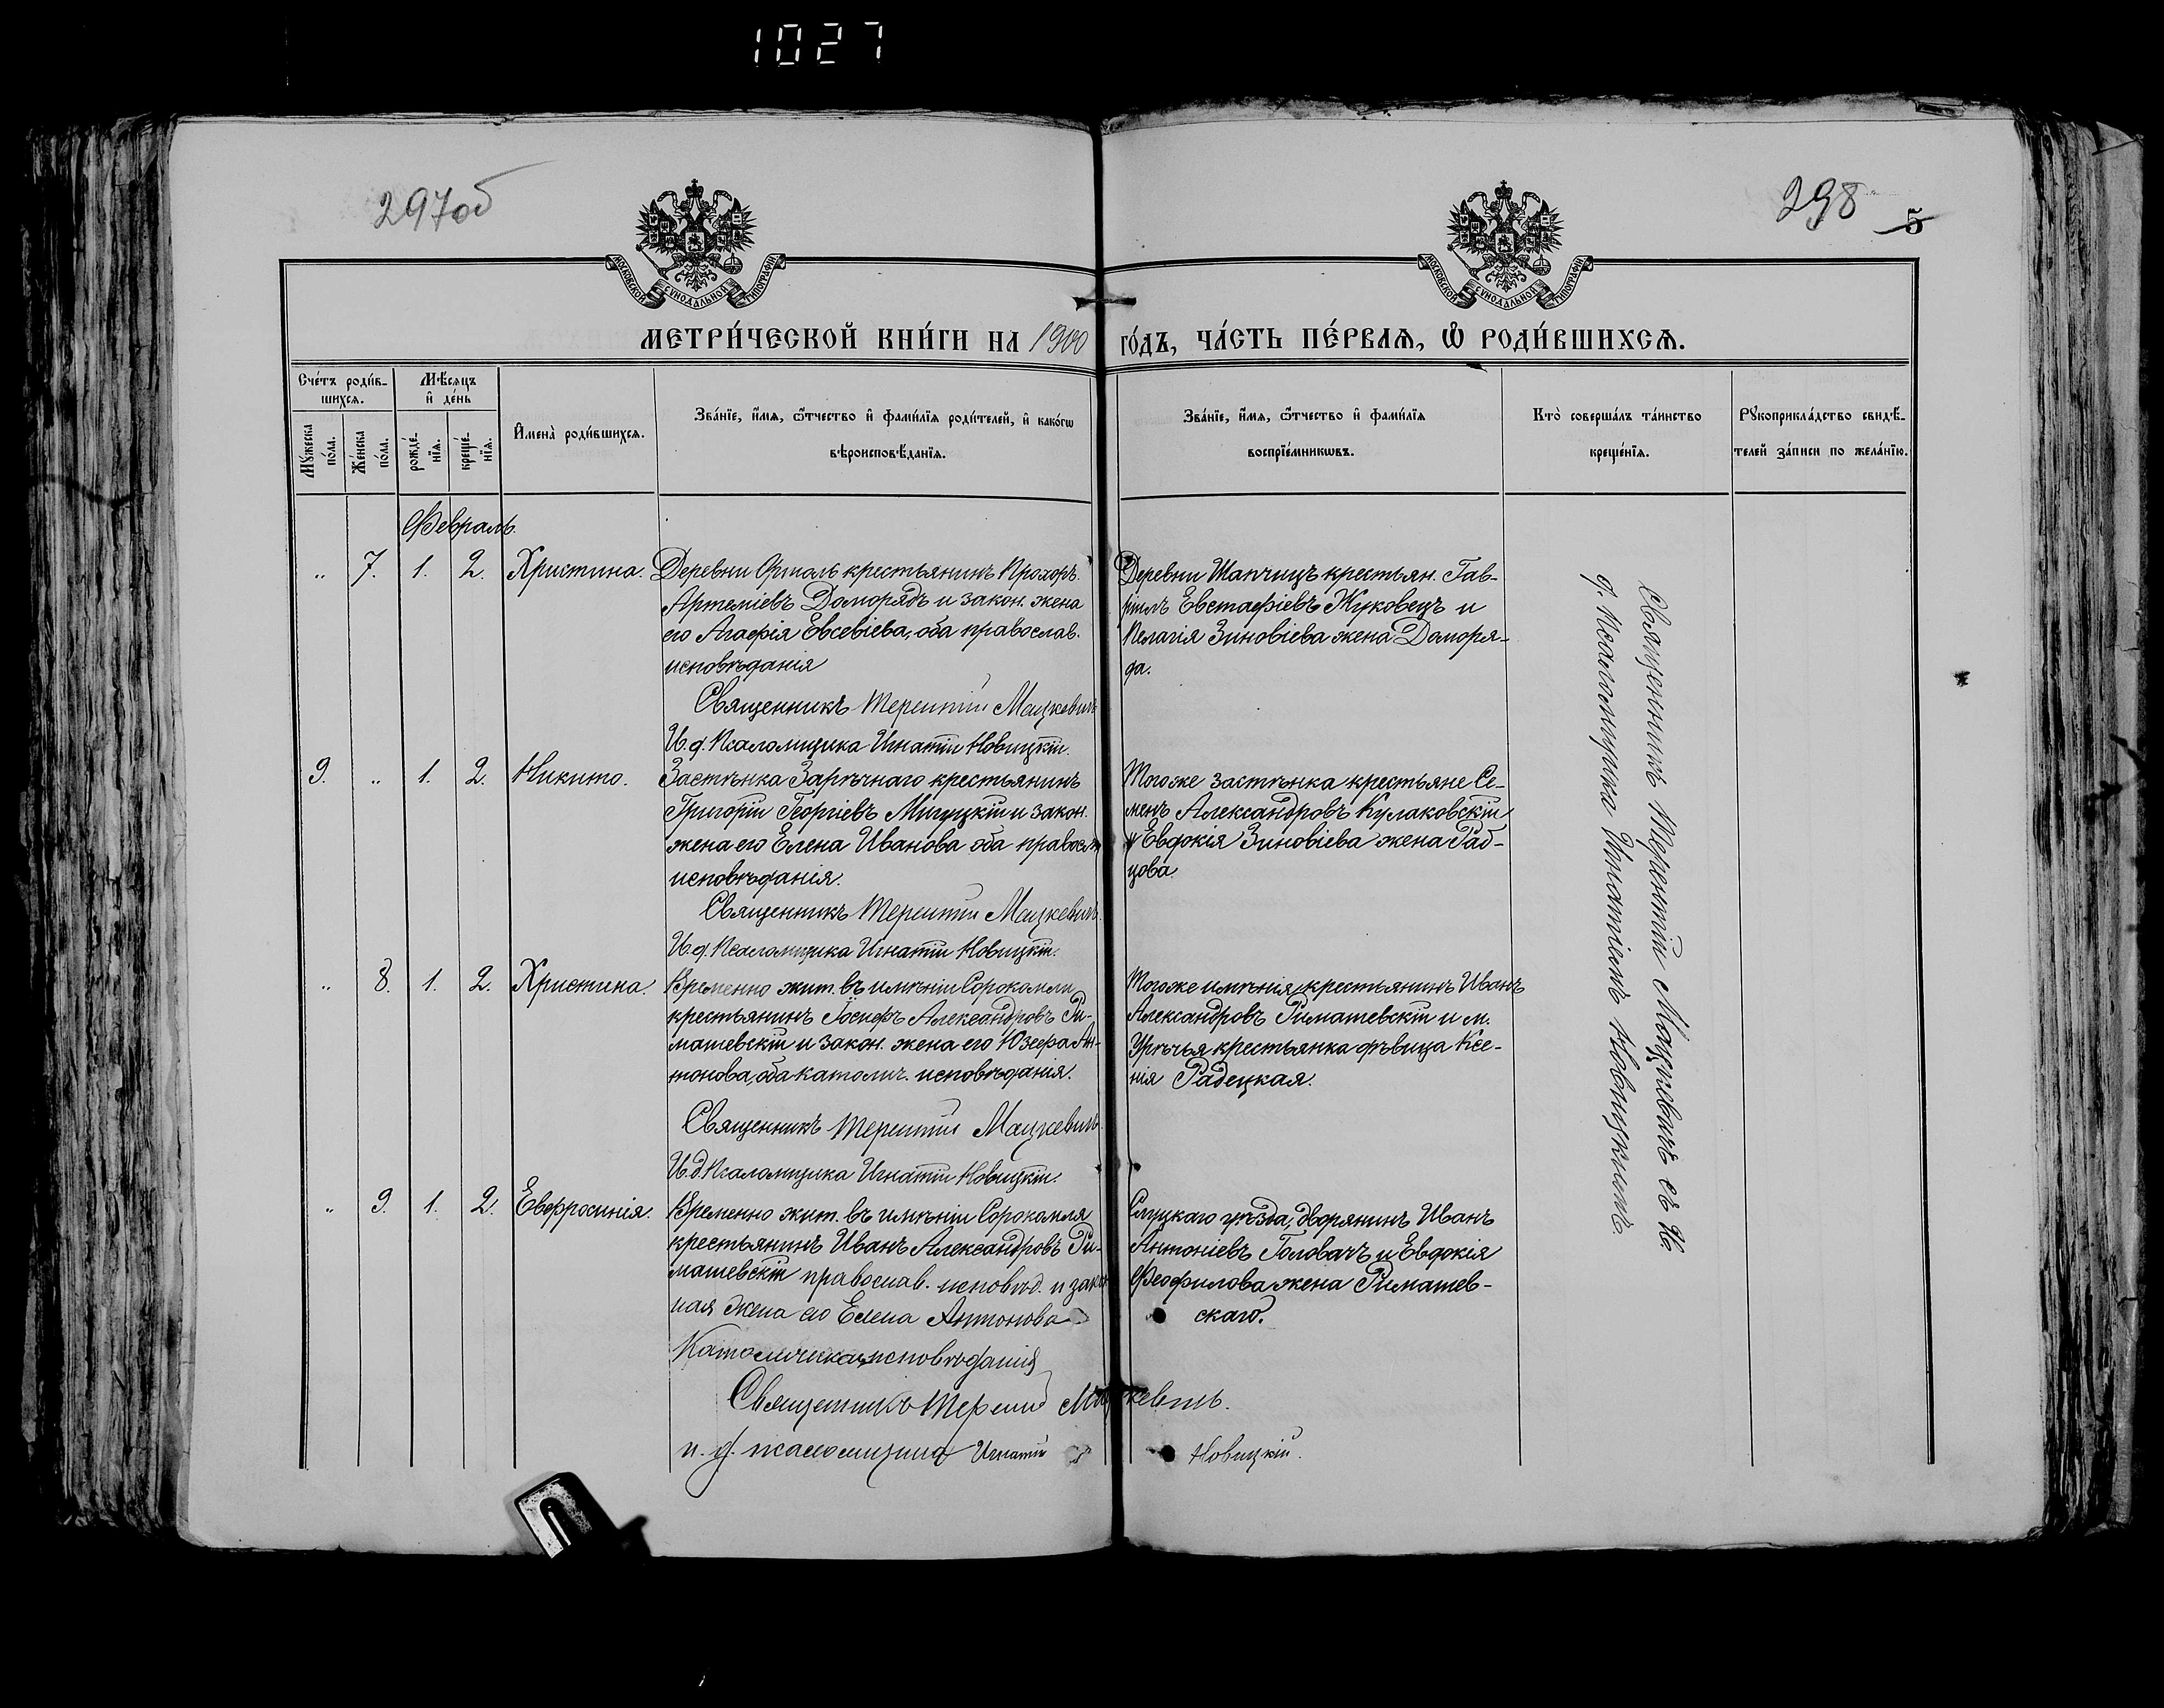 1027
297об
298
5
МОСКОВСКОЙ СѴНОДАЛЬНОЙ ТИПОГРАФІИ
МОСКОВСКОЙ СѴНОДАЛЬНОЙ ТИПОГРАФІИ
МЕТРИ́ЧЕСКОЙ КНИ́ГИ НА 1900 ГО́ДЪ, ЧА́СТЬ ПЕ́РВАѦ, Ѡ҆ РОДИ́ВШИХСѦ.
Сче́тъ роди́в-
шихсѧ.
Мꙋ́жеска по́ла.
Же́нска по́ла.
Мѣ́сѧцъ
и҆ де́нь
рожде́-нїѧ.
креще́-нїѧ.
И҆мена̀ роди́вшихсѧ.
Зва́нїе, и҆́мѧ, ѻ҆́тчество и҆ фами́лїѧ роди́телей, и҆ како́гѡ
вѣроисповѣ́данїѧ.
Зва́нїе, и҆́мѧ, ѻ҆́тчество и҆ фами́лїѧ
воспрїе́мникѡвъ.
Кто̀ соверша́лъ та́инство
креще́нїѧ.
Рꙋкоприкла́дство свидѣ́-
телей за́писи по жела́нїю.
Февраль.
„ 7. 1. 2. Христина.
Деревни Орталь крестьянинъ Прохоръ
Артеміевъ Доморядъ и закон. жена
его Агафія Евсевіева, оба православ.
исповѣданія
Священникъ Терентій Мацкевичъ
И. д. Псаломщика Игнатій Новицкій.
Деревни Шапчицъ крестьян. Гав-
ріилъ Евстафіевъ Жуковецъ и
Пелагія Зиновіева жена Доморя-
да.
9. „ 1. 2. Никита.
Застѣнка Зарѣчнаго крестьянинъ
Григорій Георгіевъ Мигуцкій и закон.
жена его Елена Иванова оба правосл.
исповѣданія.
Священникъ Терентій Мацкевичъ.
И. д. Псаломщика Игнатій Новицкій.
Тогоже застѣнка крестьяне Се-
менъ Александровъ Кулаковскій
и Евдокія Зиновіева жена Раб-
цова
„ 8. 1. 2. Христина.
Временно жит. въ имѣніи Сорокомли
крестьянинъ Іосифъ Александровъ Ри-
машевскій и закон. жена его Юзефа Ан-
тонова, оба католич. исповѣданія.
Священникъ Терентій Мацкевичъ.
И. д. Псаломщика Игнатій Новицкій.
Тогоже имѣнія крестьянинъ Иванъ
Александровъ Римашевскій и м.
Урѣчья крестьянка дѣвица Ксе-
нія Радецкая.
„ 9. 1. 2. Евфросинія.
Временно жит. въ имѣніи Сорокомля
крестьянинъ Иванъ Александровъ Ри-
машевскій православ. исповѣд. и закон
ная жена его Елена Антонова
Католическаго исповѣданія
Священникъ Терентій Мацкевичъ.
и. д. псаломщика Игнатій Новицкій.
Слуцкаго уѣзда, дворянинъ Иванъ
Антоніевъ Головачъ и Евдокія
Феофилова жена Римашев-
скаго.
Священникъ Терентій Мацкевичъ съ И.
д. Псаломщика Игнатіемъ Новицкимъ